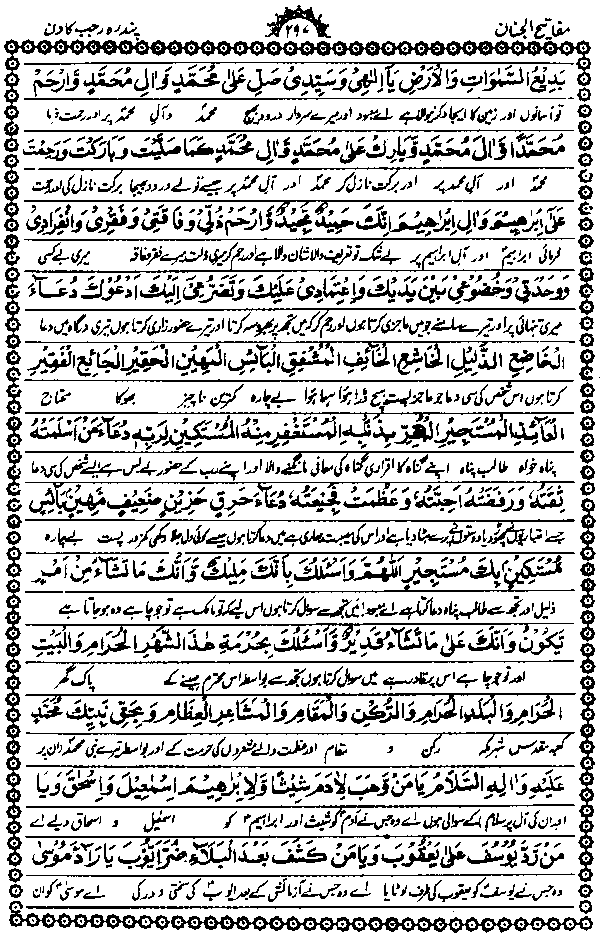 مفاتیح الجنان
۲۹۷
پندرہ رجب کا دن
بَدِيْعُ السَّمٰوَاتِ وَالْاَرْضِ يَا اِلٰهِىْ وَسَيِّدِىْ صَلِّ عَلٰى مُحَمَّدٍ وَّاٰلِ مُحَمَّدٍ وَّارْحَمْ
تو آسمانوں اور زمین کا ایجاد کرنیوالا ہے اے معبود اور میرے سردار درود بھیج محمدؐ و آلِ محمدؐ پر اور رحمت فرما
مُحَمَّدًا وَّاٰلَ مُحَمَّدٍ وَّبَارِكْ عَلٰى مُحَمَّدٍ وَّاٰلِ مُحَمَّدٍ كَمَا صَلَّيْتَ وَبَارَكْتَ وَرَحِمْتَ
محمدؐ اور آلِ محمدؐ پر اور برکت نازل کر محمدؐ اور آلِ محمدؐ پر جیسے تو نے درود بھیجا برکت نازل کی اور رحمت
عَلٰى اِبْرَاهِيْمَ وَاٰلِ اِبْرَاهِيْمَ اِنَّكَ حَمِيْدٌ مَّجِيْدٌ وَّارْحَمْ ذُلِّىْ وَفَاقَتِىْ وَفَقْرِىْ وَانْفِرَادِىْ
فرمائی ابراہیمؑ اور آلِ ابراہیمؑ پر بے شک تو تعریف والا شان والا ہے اور رحم کر میری ذلت میرے فقر و فاقہ میری بے کسی
وَوَحْدَتِىْ وَخُضُوْعِىْ بَيْنَ يَدَيْكَ وَاعْتِمَادِىْ عَلَيْكَ وَتَضَرُّعِىْ اِلَيْكَ اَدْعُوْكَ دُعَآءَ
میری تنہائی پر اور تیرے سامنے جو میں عاجزی کرتا ہوں اور رحم کر کہ میں تجھ پر بھروسہ کرتا اور تیرے حضور زاری کرتا ہوں تیری درگاہ میں دعا
الْخَاضِعِ الذَّلِيْلِ الْخَاشِعِ الْخَآئِفِ الْمُشْفِقِ الْبَآئِسِ الْمَهِيْنِ الْحَقِيْرِ الْجَآئِعِ الْفَقِيْرِ
کرتا ہوں اس شخص کی سی دعا جو عاجز پست ہیچ ڈرا ہوا سہما ہوا بے چارہ کمترین ناچیز بھوکا محتاج
الْعَآئِذِ الْمُسْتَجِيْرِ الْمُقِرِّ بِذَنْبِهِ الْمُسْتَغْفِرِ مِنْهُ الْمُسْتَكِيْنِ لِرَبِّهٖ دُعَآءَ مَنْ اَسْلَمَتْهُ
پناہ خواہ طالب پناہ اپنے گناہ کا اقراری گناہ کی معافی مانگنے والا اور اپنے رب کے حضور بے بس ہے ایسے شخص کی سی دعا
ثِقَتُهٗ وَرَفَضَتْهُ اَحِبَّتُهٗ وَعَظُمَتْ فَجِيْعَتُهٗ دُعَآءَ حَرِقٍ حَزِيْنٍ ضَعِيْفٍ مَّهِيْنٍ بَآئِسٍ
دوستوں نے ہٹا دیا ہے اور اس کی مصیبت بھاری ہے میں دعا کرتا ہوں جیسے کوئی دل جلا دکھی کمزور پست بے چارہ
مُّسْتَكِيْنٍ بِكَ مُسْتَجِيْرٍ اَللّٰهُمَّ وَاَسْئَلُكَ بِاَنَّكَ مَلِيْكٌ وَّاَنَّكَ مَا تَشَآءُ مِنْ اَمْرٍ
ذلیل اور تجھ سے طالب پناہ دعا کرتا ہے اے معبود میں تجھ سے سوال کرتا ہوں اس لیے کہ تو مالک ہے تو جو چاہے وہ ہو جاتا ہے
يَّكُوْنُ وَاَنَّكَ عَلٰى مَا تَشَآءُ قَدِيْرٌ وَّاَسْئَلُكَ بِحُرْمَةِ هٰذَا الشَّهْرِ الْحَرَامِ وَالْبَيْتِ
اور تو جو چاہے اس پر قادر ہے میں سوال کرتا ہوں تجھ سے بواسطہ اس محترم مہینے کے پاک گھر
الْحَرَامِ وَالْبَلَدِ الْحَرَامِ وَالرُّكْنِ وَالْمَقَامِ وَالْمَشَاعِرِ الْعِظَامِ وَبِحَقِّ نَبِيِّكَ مُحَمَّدٍ
کعبہ مقدس شہر مکہ رکن و مقام اور عظمت والے مشعروں کی حرمت کے اور بواسطہ تیرے نبی محمدؐ ان پر
عَلَيْهِ وَاٰلِهِ السَّلَامُ يَا مَنْ وَّهَبَ لِاٰدَمَ شِيْثًا وَّلِاِبْرَاهِيْمَ اِسْمٰعِيْلَ وَاِسْحٰقَ وَيَا
اور ان کی آل پر سلام کے سوالی ہوں اے وہ جس نے آدمؑ کو شیثؑ اور ابراہیمؑ کو اسمٰعیلؑ و اسحاقؑ دیے اے
مَنْ رَّدَّ يُوْسُفَ عَلٰى يَعْقُوْبَ وَيَا مَنْ كَشَفَ بَعْدَ الْبَلَآءِ ضُرَّ اَيُّوْبَ يَا رَآدَّ مُوْسٰى
وہ جس نے یوسفؑ کو یعقوبؑ کی طرف لوٹایا اے وہ جس نے آزمائش کے بعد ایوبؑ کی سختی دور کی اے موسیٰؑ کو ان